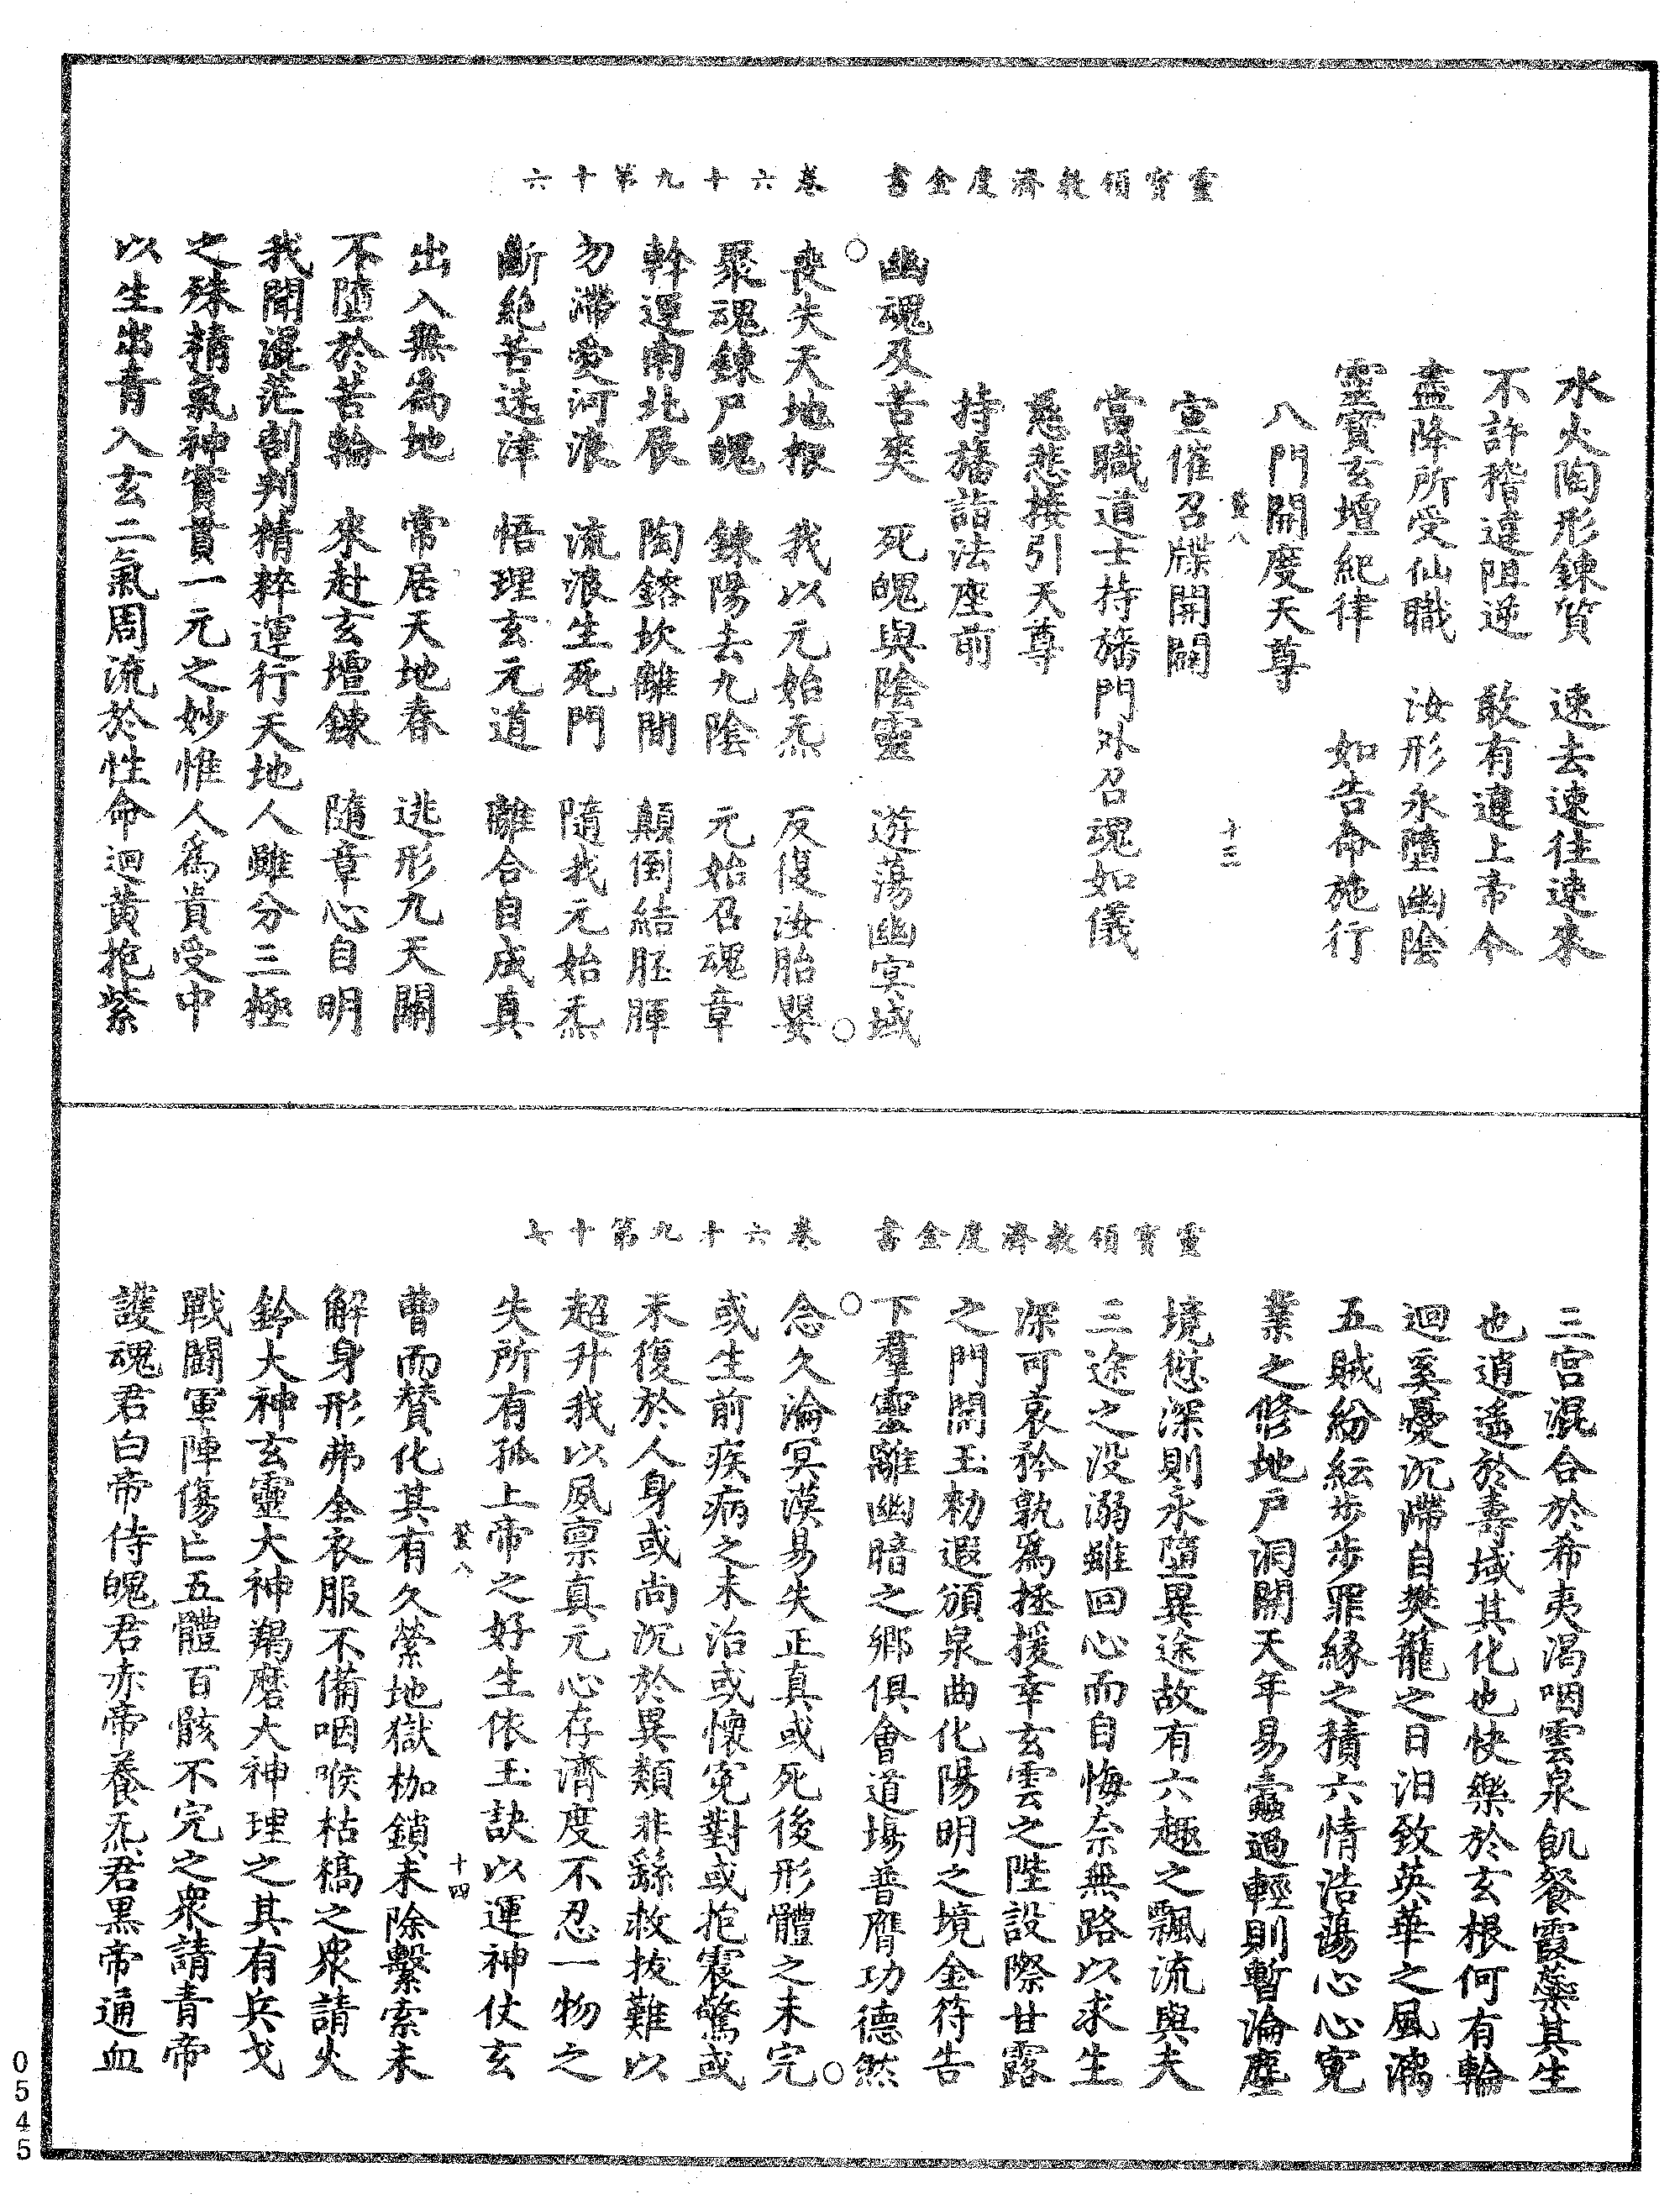 靈寶領教濟度金書　卷六十九第十六
水火陶形鍊質　速去速往速來
不許稽違阻逆　敢有違上帝令
盡降所受仙職　汝形永墮幽陰
靈寶玄壇紀律　如告命施行
八門開度天尊
十三
宣催召牒開闢
當職道士持旛門外召魂如儀
慈悲接引天尊
持旛詣法座前
幽魂及苦爽　死魄與陰靈　遊蕩幽冥域
○喪失天地根　我以元始炁　反復汝胎嬰○
聚魂鍊尸魄　鍊陽去九陰　元始召魂章
斡運南北辰　陶鎔坎離間　顛倒結胚腪
勿滯愛河浪　流浪生死門　隨我元始炁
斷絕苦迷津　悟理玄元道　離合自成真
出入無為地　常居天地春　逃形九天關
不墮於苦輪　來赴玄壇鍊　隨章心自明
我聞混茫剖判精粹運行天地人雖分三極
之殊精氣神實貫一元之妙惟人為貴受中
以生出青入玄二氣周流於性命迴黃抱紫
靈寶領教濟度金書　卷六十九第十七
三宮混合於希夷渴咽雲泉飢餐霞藥其生
也逍遙於壽域其化也快樂於玄根何有輪
迴奚憂沉滯自樊籠之日汨致英華之風漓
五賊紛紜步步罪緣之積六情浩蕩心心寃
業之修地戶洞開天年易蠹過輕則暫淪塵
境愆深則永墮異途故有六趣之飄流與夫
三途之沒溺雖回心而自悔奈無路以求生
深可哀矜孰為拯援幸玄雲之陛設際甘露
之門開玉勑遐頒泉曲化陽明之境金符告
下羣靈離幽暗之鄉俱會道場普膺功德然
○念久淪冥漠易失正真或死後形體之未完○
或生前疾病之未治或懷寃對或抱震驚或
未復於人身或尚沉於異類非繇救拔難以
超升我以夙稟真元心存濟度不忍一物之
失所有孤上帝之好生依玉訣以運神仗玄
十四
曹而贊化其有久縈地獄枷鎖未除繫索未
解身形弗全衣服不備咽喉枯槁之眾請火
鈴大神玄靈大神羯磨大神理之其有兵戈
戰鬭軍陣傷亡五體百骸不完之眾請青帝
護魂君白帝侍魄君赤帝養炁君黑帝通血
0545